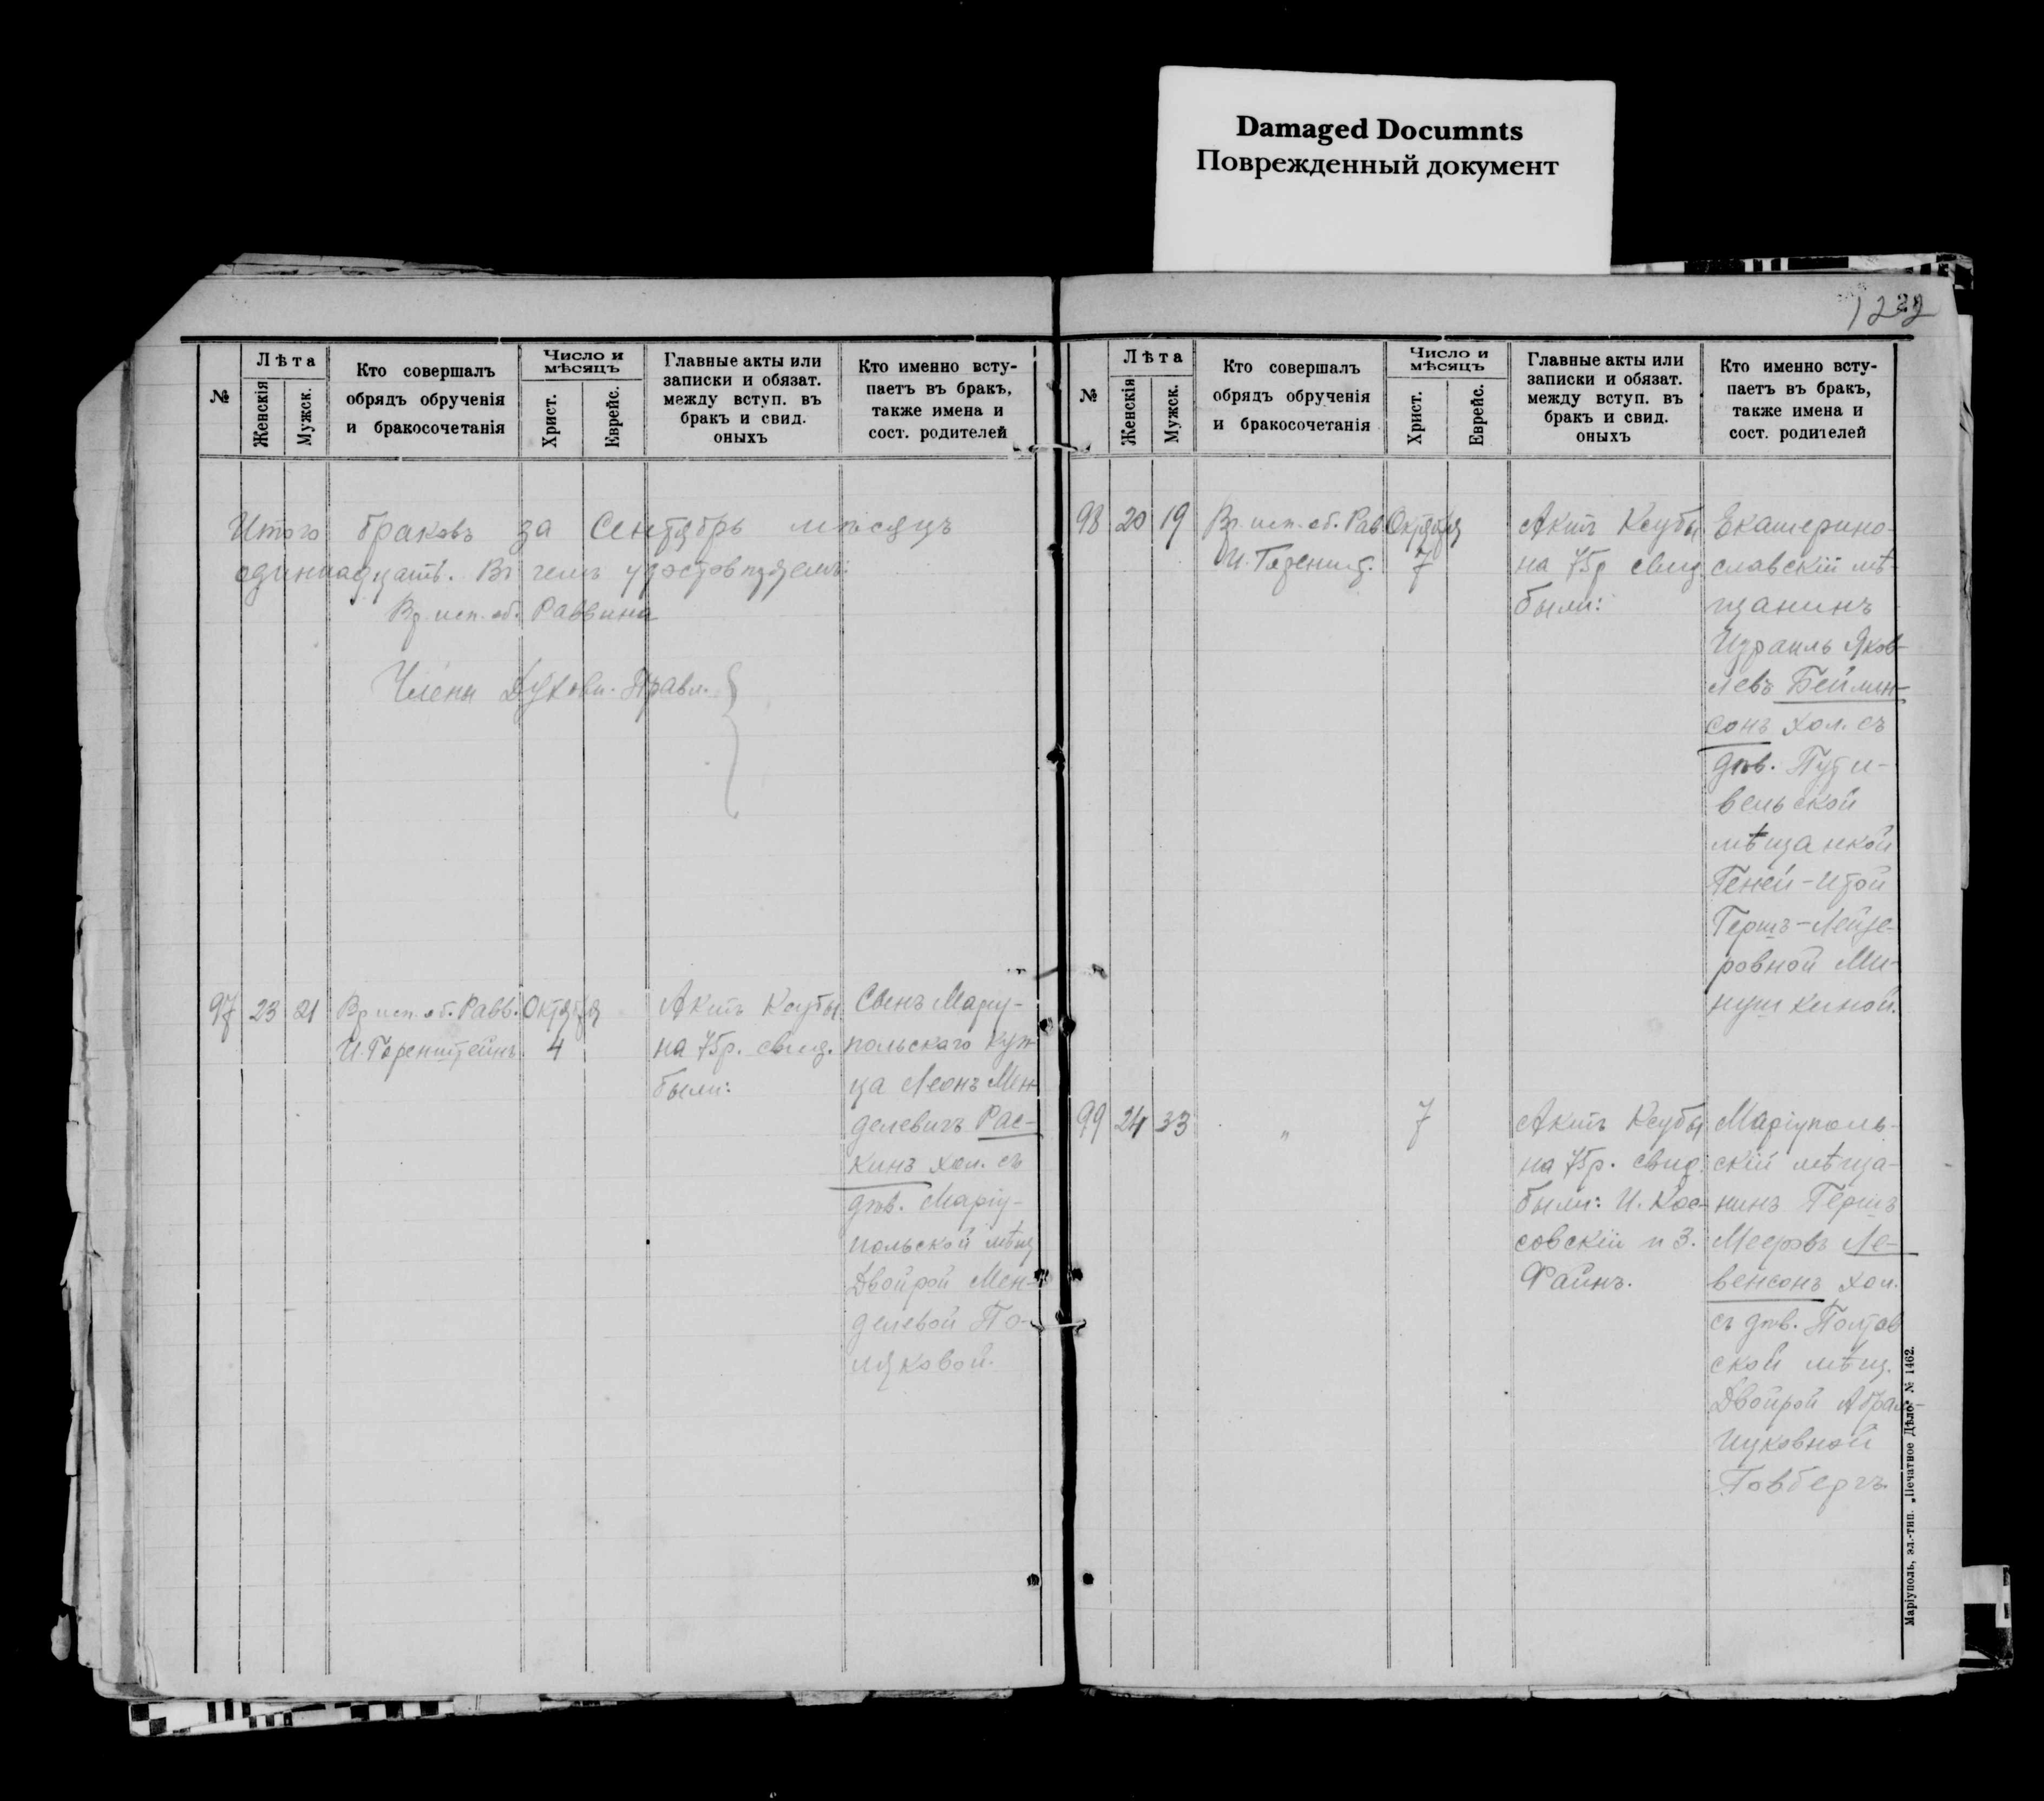 Damaged Documnts
Поврежденный документ
№
Лѣта
Женскія
Мужск.
Кто совершалъ
обрядъ обрученія
и бракосочетанія
Число и
мѣсяцъ
Христ.
Еврейс.
Главные акты или
записки и обязат.
между вступ. въ
бракъ и свид.
оныхъ
Кто именно всту-
паетъ въ бракъ,
также имена и
сост. родителей
Итого браковъ за Сентябрь мѣсяцъ
одиннадцать. Въ чемъ удостовѣряемъ:
Вр. исп. об. Раввина
Члены Духовн. Правл.
97 23 21
Вр. исп. об. Равв.
И. Горенштейнъ
Октября
4
Актъ Ксубы
на 75р. свид.
были:
Сынъ Маріу-
польскаго куп-
ца Леонъ Мен-
делевичъ Рас-
кинъ хол. съ
дѣв. Маріу-
польской мѣщ
Двойрой Мен-
делевой По-
ляковой.
122
№
Лѣта
Женскія
Мужск.
Кто совершалъ
обрядъ обрученія
и бракосочетанія
Число и
мѣсяцъ
Христ.
Еврейс.
Главные акты или
записки и обязат.
между вступ. въ
бракъ и свид.
оныхъ
Кто именно всту-
паетъ въ бракъ,
также имена и
сост. родителей
98 20 19
Вр. исп. об. Рав
И. Гореншт.
Октября
7
Актъ Ксубы
на 75р свид
были:
Екатерино-
славскій мѣ-
щанинъ
Израиль Яков-
левъ Бейлин-
сонъ хол. съ
дѣв. Пути-
вельской
мѣщанкой
Геней-Итой
Гершъ-Лейзе-
ровной Ми-
нушкиной.
99 24 33
"
7
Актъ Ксубы
на 75р. свид.
были: И. Кос-
совскій и З.
Файнъ.
Маріуполь-
скій мѣща-
нинъ Гершъ
Мееровъ Ле-
венсонъ хол.
съ дѣв. Полтав
ской мѣщ.
Двойрой Абрам-
Ицковной
Говбергъ
Маріуполь, эл.-тип. „Печатное Дѣло“ № 1462.